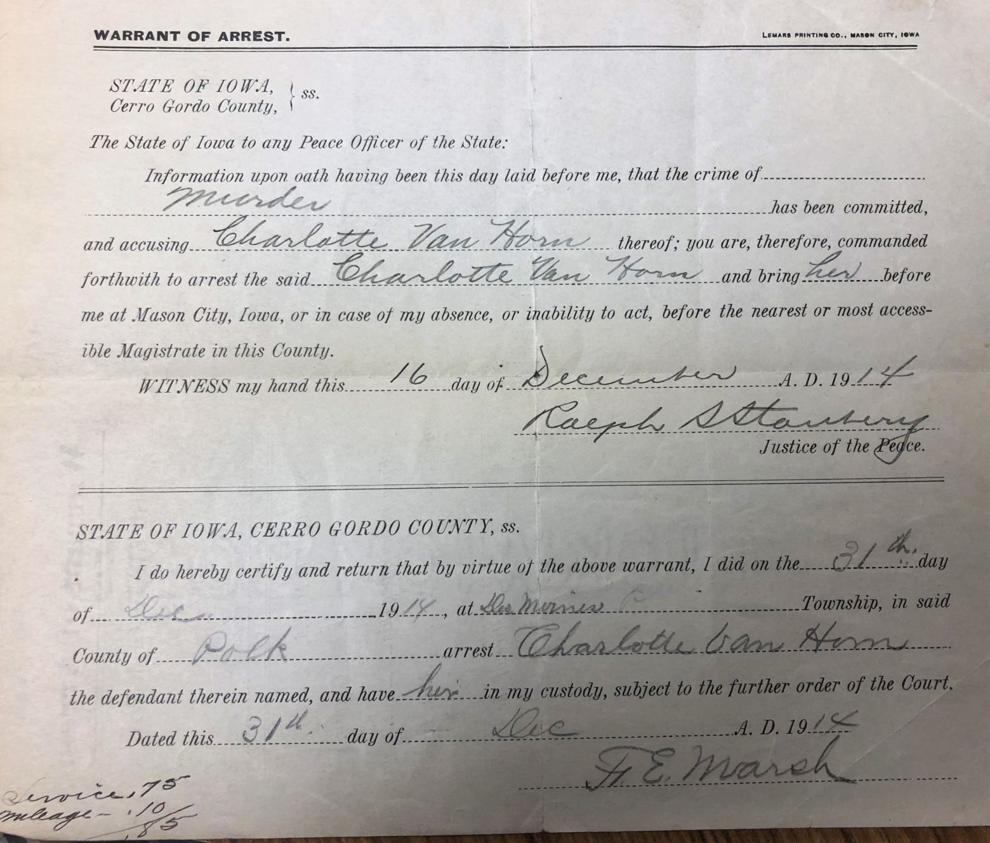 WARRANT OF ARREST.
LEMARS PRINTING CO., MASON CITY, IOWA
STATE OF IOWA, } ss.
Cerro Gordo County,
The State of Iowa to any Peace Officer of the State:
Information upon oath having been this day laid before me, that the crime of
Murder has been committed,
and accusing Charlotte Van Horn thereof; you are, therefore, commanded
forthwith to arrest the said Charlotte Van Horn and bring her before
me at Mason City, Iowa, or in case of my absence, or inability to act, before the nearest or most access-
ible Magistrate in this County.
WITNESS my hand this 16 day of December A. D. 1914
Ralph S Stanbery
Justice of the Peace.
STATE OF IOWA, CERRO GORDO COUNTY, ss.
I do hereby certify and return that by virtue of the above warrant, I did on the 31th day
of Dec 1914, at Des Moines Township, in said
County of Polk arrest Charlotte Van Horn
the defendant therein named, and have her in my custody, subject to the further order of the Court.
Dated this 31th day of Dec A. D. 1914
F. E. Marsh
Service .75
mileage - .10
.85